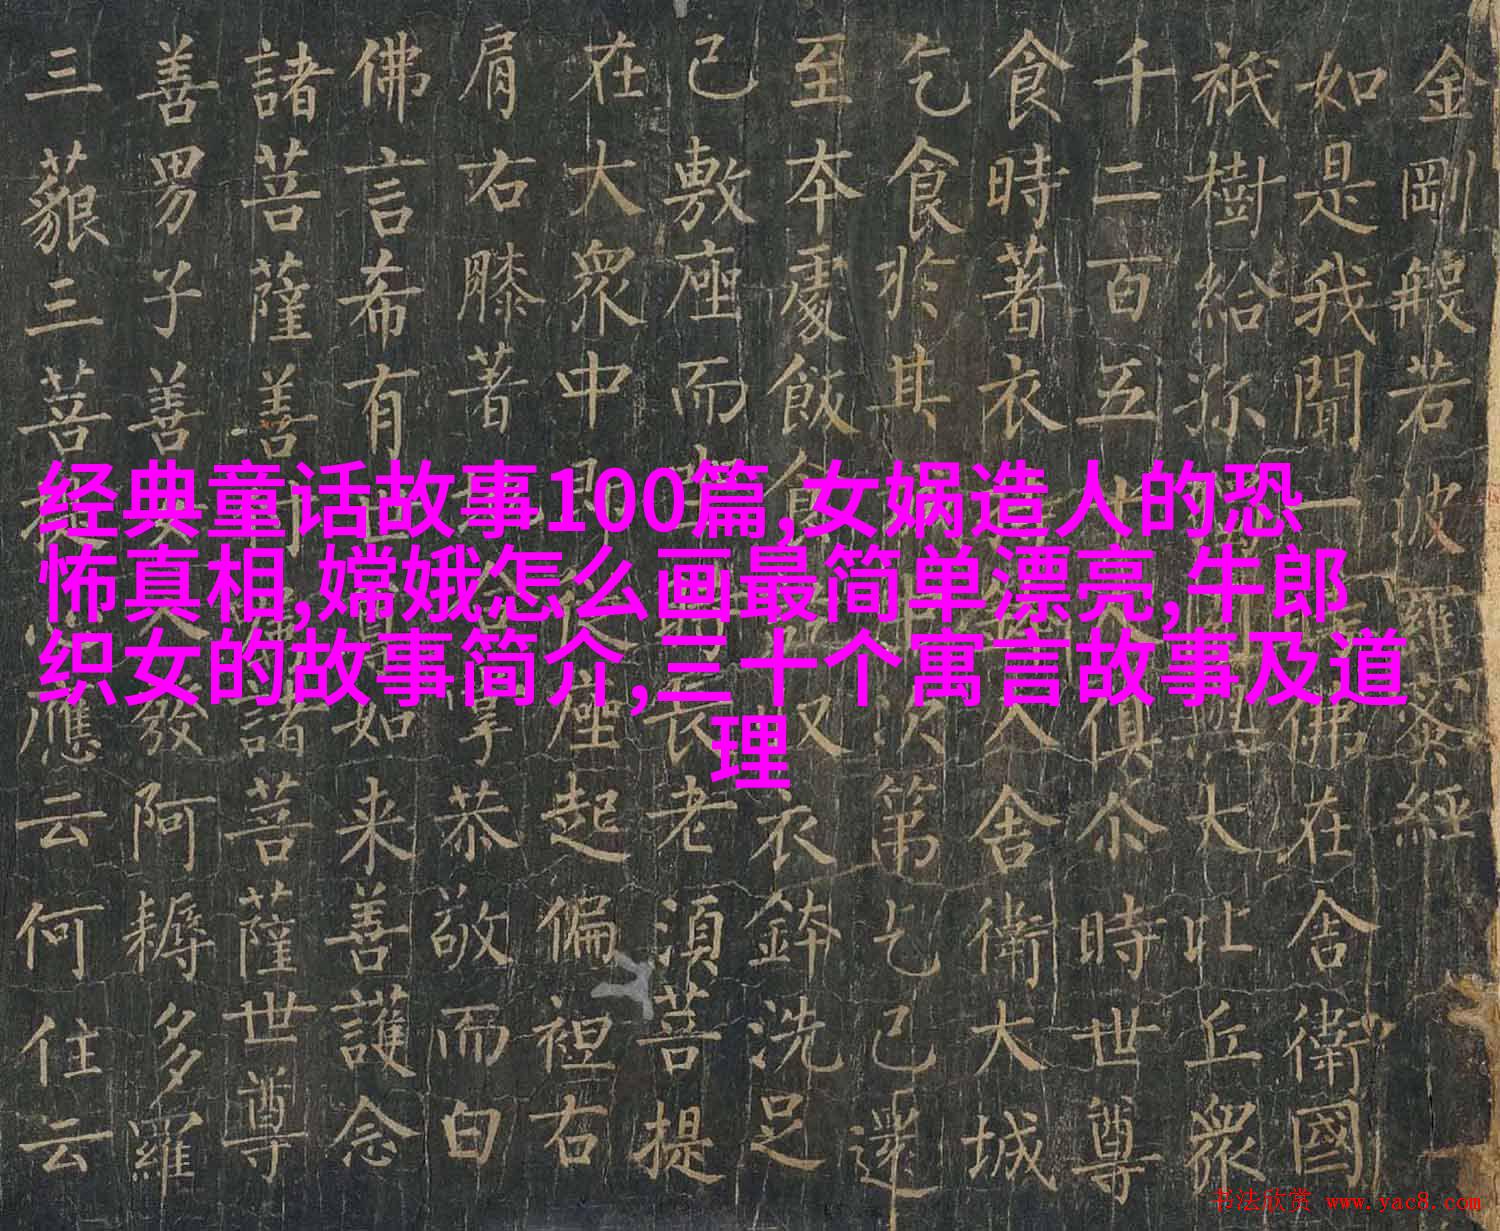 金剛般若波羅蜜經
如是我聞一佛在舍衛國
祇樹給孤大比丘眾
千二百五俱尒時世尊
食時著衣入舍衛大城
乞食於其次第乞已還
至本處飯食収衣鉢洗足
已敷座而長老須菩提
在大眾中座起偏袒右
肩右膝著掌恭敬而白
佛言希有如来善護念
諸菩薩善諸菩薩世尊
善男子善發阿耨多羅
三藐三菩應云何住云
经典童话故事100篇,女娲造人的恐
怖真相,嫦娥怎么画最简单漂亮,牛郎
织女的故事简介,三十个寓言故事及道
理
书法欣赏 www.yac8.com